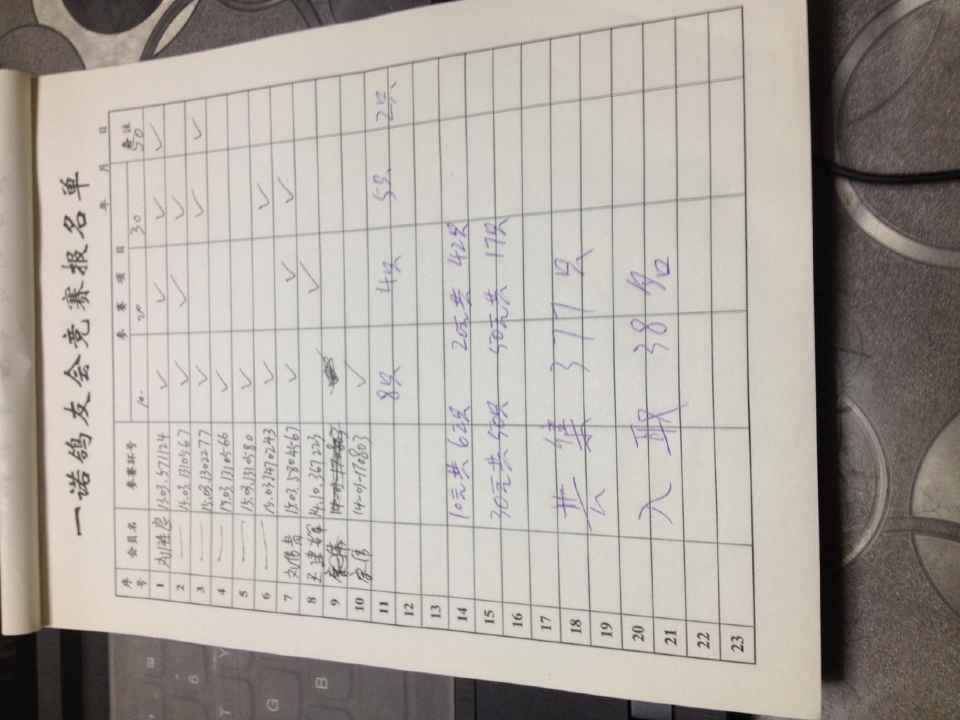 一诺鸽友会竞赛报名单
年 月 日
序号 会员名 参赛环号 参赛项目 备注
10. 20 30 50
1 15.03.571124 ✓ ✓ ✓ ✓
2 —— 15.03.1310567 ✓ ✓ ✓
3 —— 15.03.1302277 ✓ ✓ ✓
4 —— 15.03.1310566 ✓
5 —— 15.03.1310580 ✓
6 —— 15.03.1470243 ✓ ✓
7 15.03.5804567 ✓ ✓ ✓
8 王建辉 14.10.367223 ✓
9
10 宋伟 14-01-170803 ✓
11 8只 4只 5只 2只
12
13
14 10元共 62只 20元共 42只
15 30元共 50只 50元共 17只
16
17
18 共集 377只
19
20 入取 38名
21
22
23